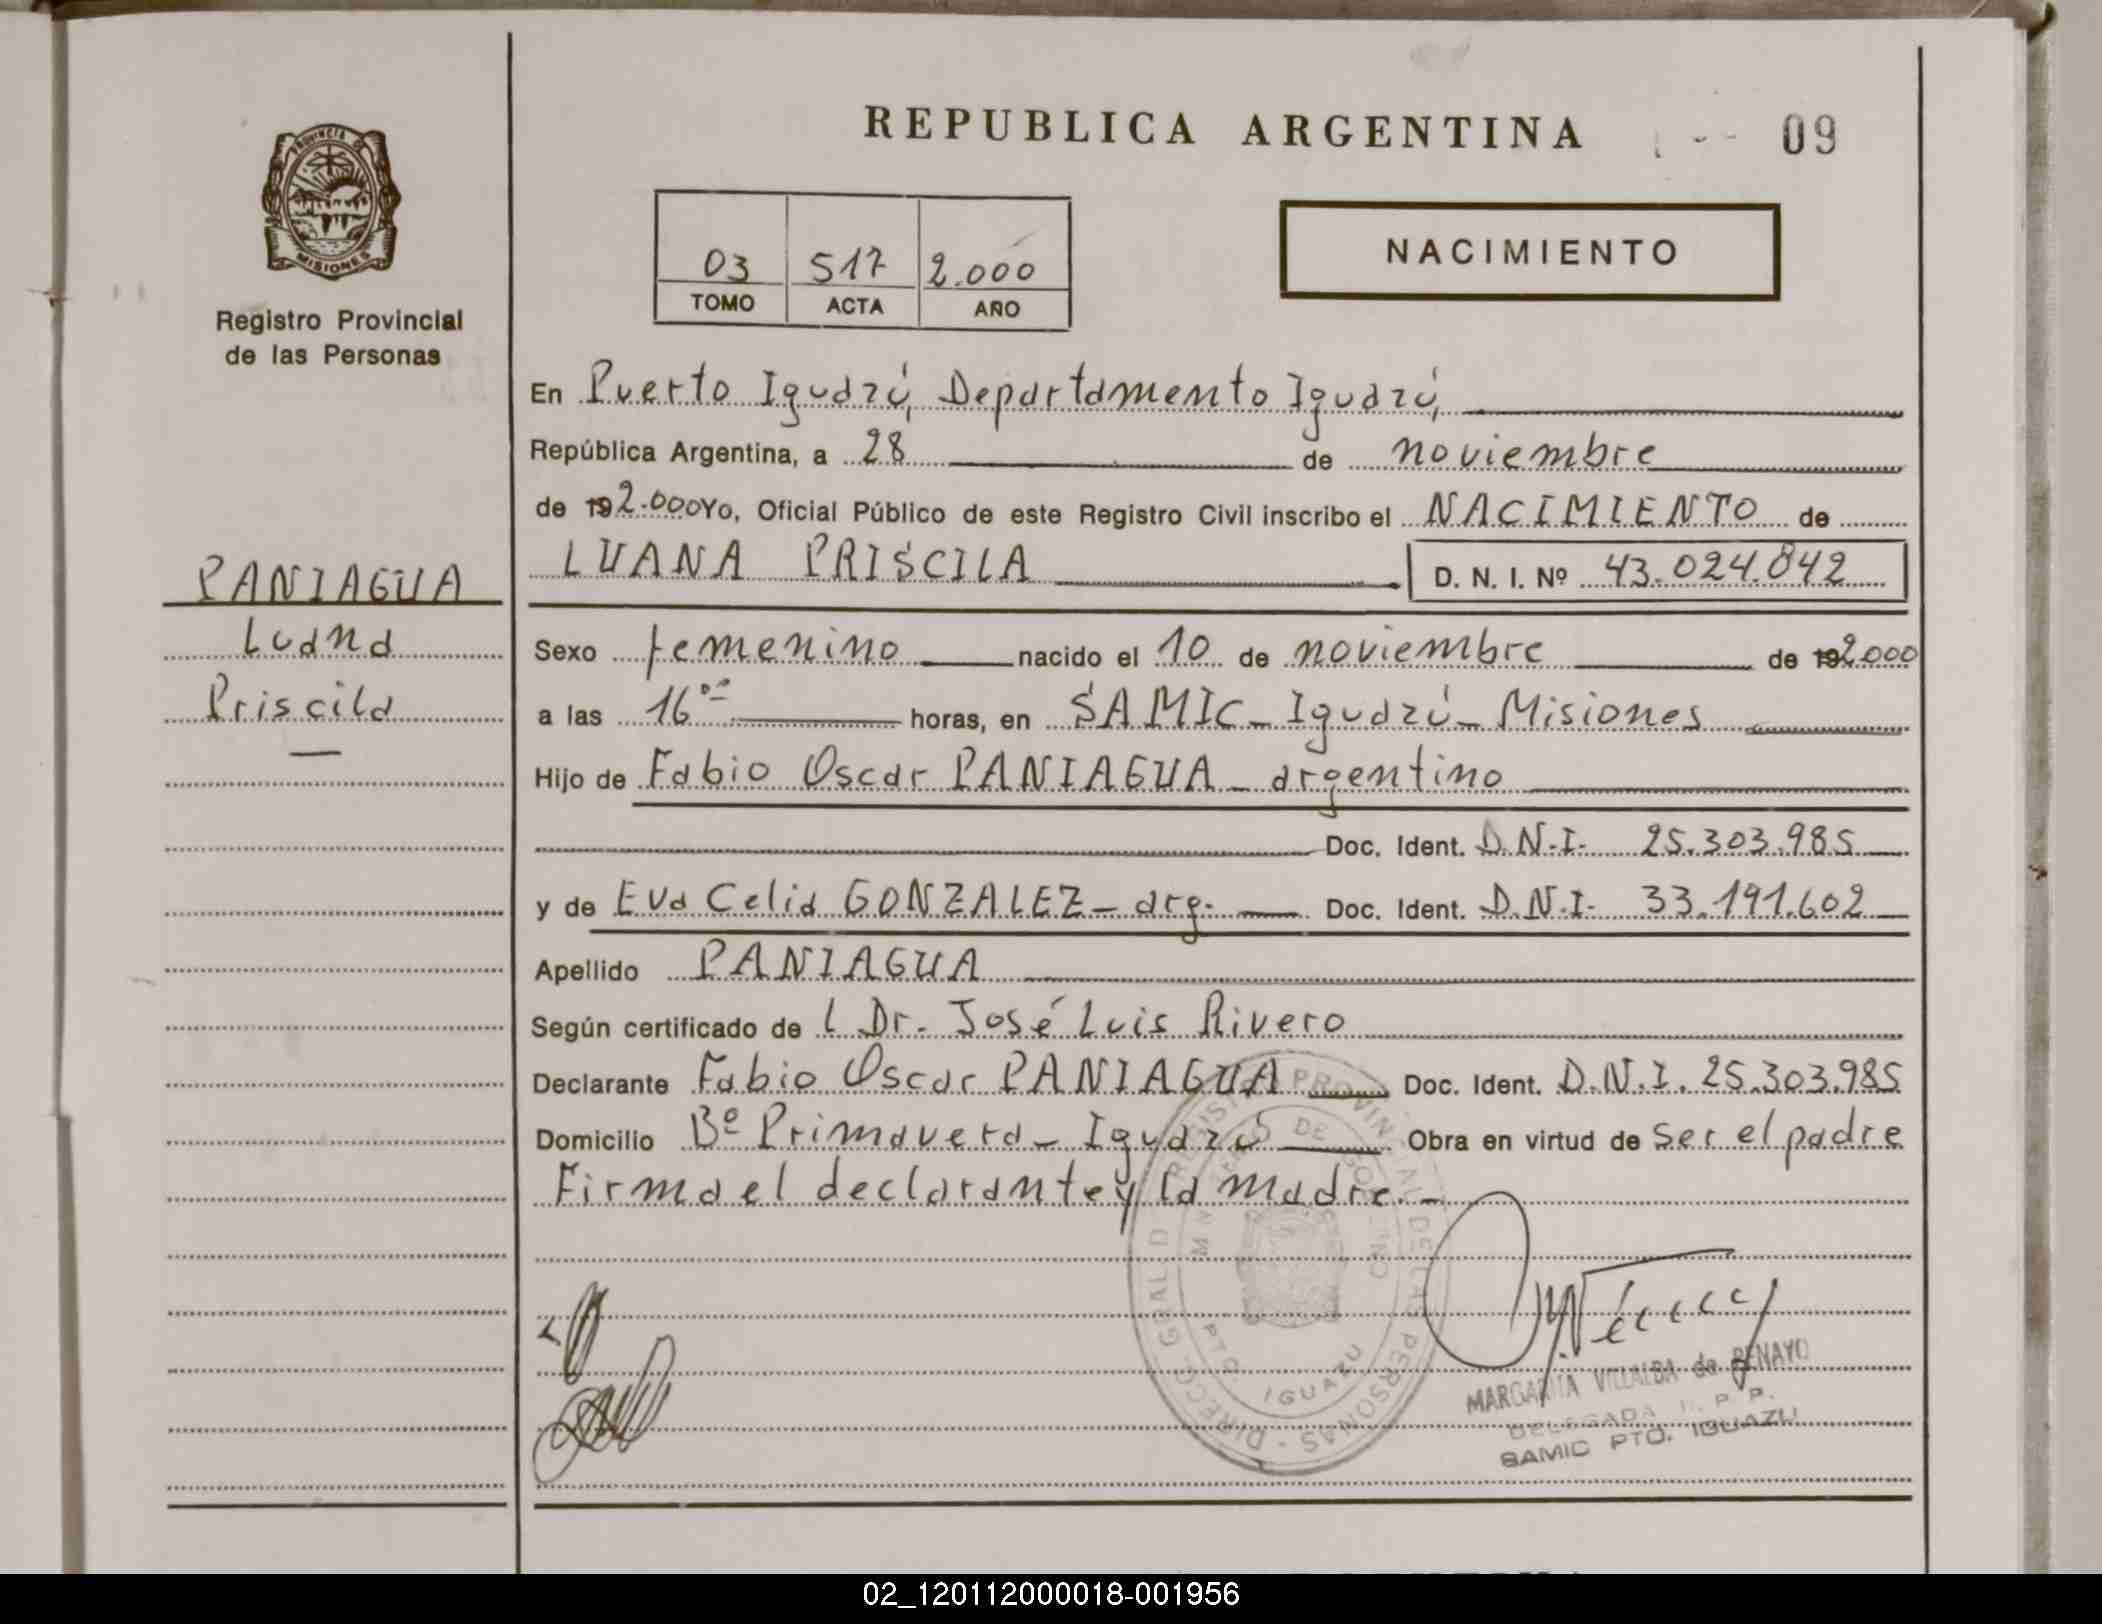 REPUBLICA ARGENTINA
09
PROVINCIA DE
MISIONES
Registro Provincial
de las Personas
03 517 2.000
TOMO ACTA AÑO
NACIMIENTO
En Puerto Iguazú, Departamento Iguazú,
República Argentina, a 28 de noviembre
de 192.000 Yo, Oficial Público de este Registro Civil inscribo el NACIMIENTO de
LUANA PRISCILA D. N. I. Nº 43.024.842
PANIAGUA
Luana
Priscila
Sexo femenino nacido el 10 de noviembre de 192000
a las 16ºº horas, en SAMIC - Iguazú - Misiones
Hijo de Fabio Oscar PANIAGUA - argentino
Doc. Ident. D.N.I. 25.303.985
y de Eva Celia GONZALEZ - arg. Doc. Ident. D.N.I. 33.191.602
Apellido PANIAGUA
Según certificado de l Dr. José Luis Rivero
Declarante Fabio Oscar PANIAGUA Doc. Ident. D.N.I. 25.303.985
Domicilio Bº Primavera - Iguazú Obra en virtud de ser el padre
Firma el declarante y la madre.-
DIRECC. GRAL D REGISTRO PROVINCIAL DE LAS PERSONAS
PTO. IGUAZU
MARGARITA VILLALBA de BENAYO
DELEGADA R. P. P.
SAMIC PTO. IGUAZU
02_120112000018-001956